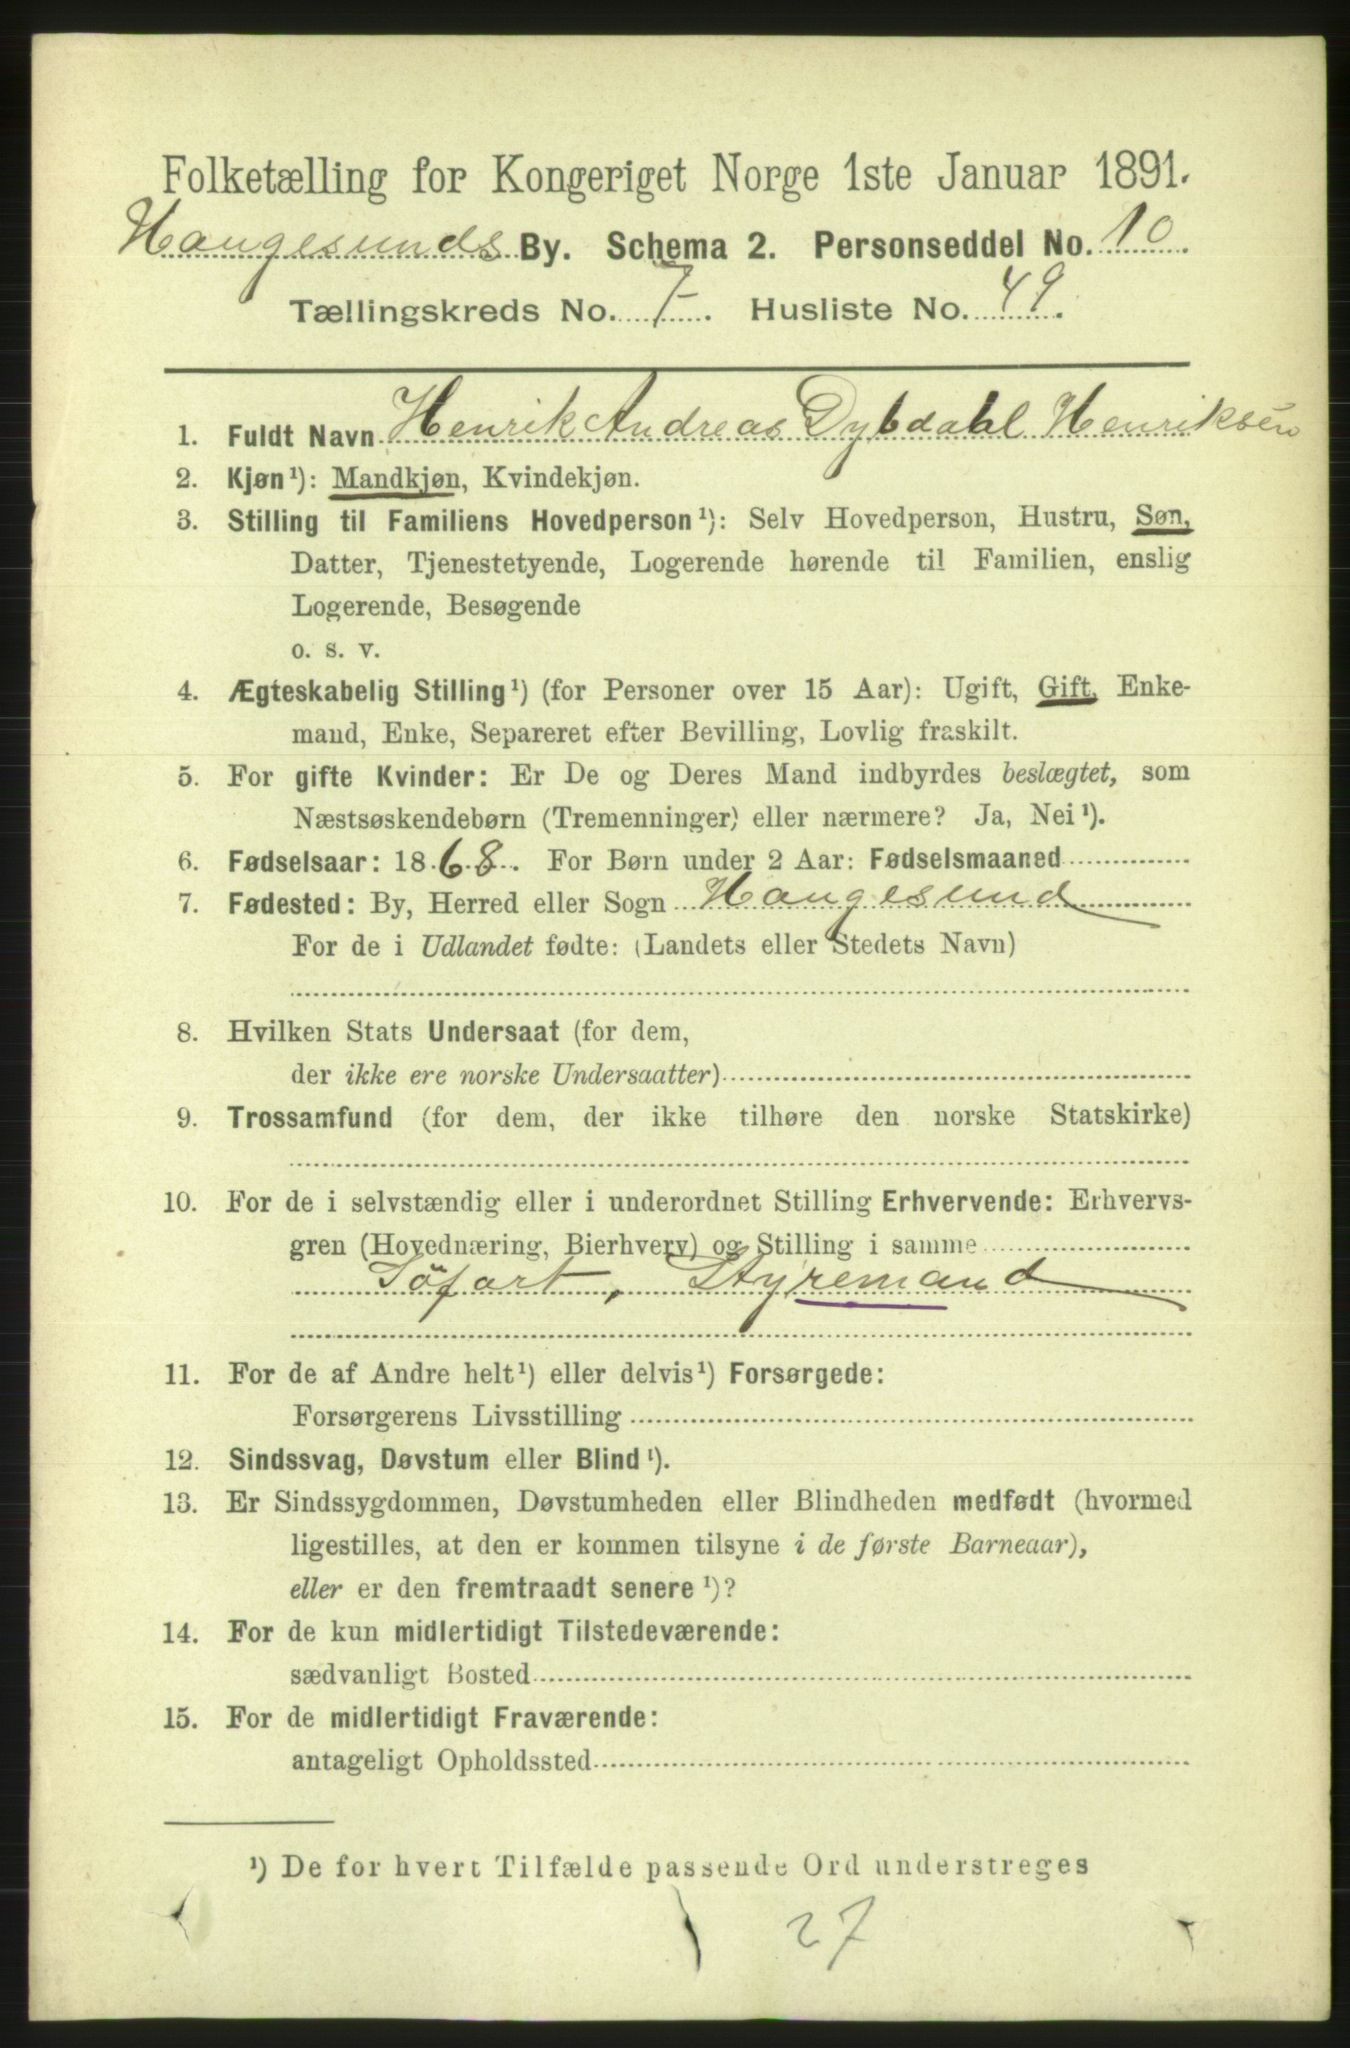 Folketælling for Kongeriget Norge 1ste Januar 1891.
Haugesunds By. Schema 2. Personseddel No. 10.
Tællingskreds No. 7. Husliste No. 49.
1. Fuldt Navn Henrik Andreas Dybdahl Henriksen
2. Kjøn¹): Mandkjøn, Kvindekjøn.
3. Stilling til Familiens Hovedperson¹): Selv Hovedperson, Hustru, Søn,
Datter, Tjenestetyende, Logerende hørende til Familien, enslig
Logerende, Besøgende
o. s. v.
4. Ægteskabelig Stilling¹) (for Personer over 15 Aar): Ugift, Gift, Enke-
mand, Enke, Separeret efter Bevilling, Lovlig fraskilt.
5. For gifte Kvinder: Er De og Deres Mand indbyrdes beslægtet, som
Næstsøskendebørn (Tremenninger) eller nærmere? Ja, Nei¹).
6. Fødselsaar: 1868. For Børn under 2 Aar: Fødselsmaaned
7. Fødested: By, Herred eller Sogn Haugesund
For de i Udlandet fødte: (Landets eller Stedets Navn)
8. Hvilken Stats Undersaat (for dem,
der ikke ere norske Undersaatter)
9. Trossamfund (for dem, der ikke tilhøre den norske Statskirke)
10. For de i selvstændig eller i underordnet Stilling Erhvervende: Erhvervs-
gren (Hovednæring, Bierhverv) og Stilling i samme
Söfart, Styremand
11. For de af Andre helt¹) eller delvis¹) Forsørgede:
Forsørgerens Livsstilling
12. Sindssvag, Døvstum eller Blind¹).
13. Er Sindssygdommen, Døvstumheden eller Blindheden medfødt (hvormed
ligestilles, at den er kommen tilsyne i de første Barneaar),
eller er den fremtraadt senere¹)?
14. For de kun midlertidigt Tilstedeværende:
sædvanligt Bosted
15. For de midlertidigt Fraværende:
antageligt Opholdssted
¹) De for hvert Tilfælde passende Ord understreges
27